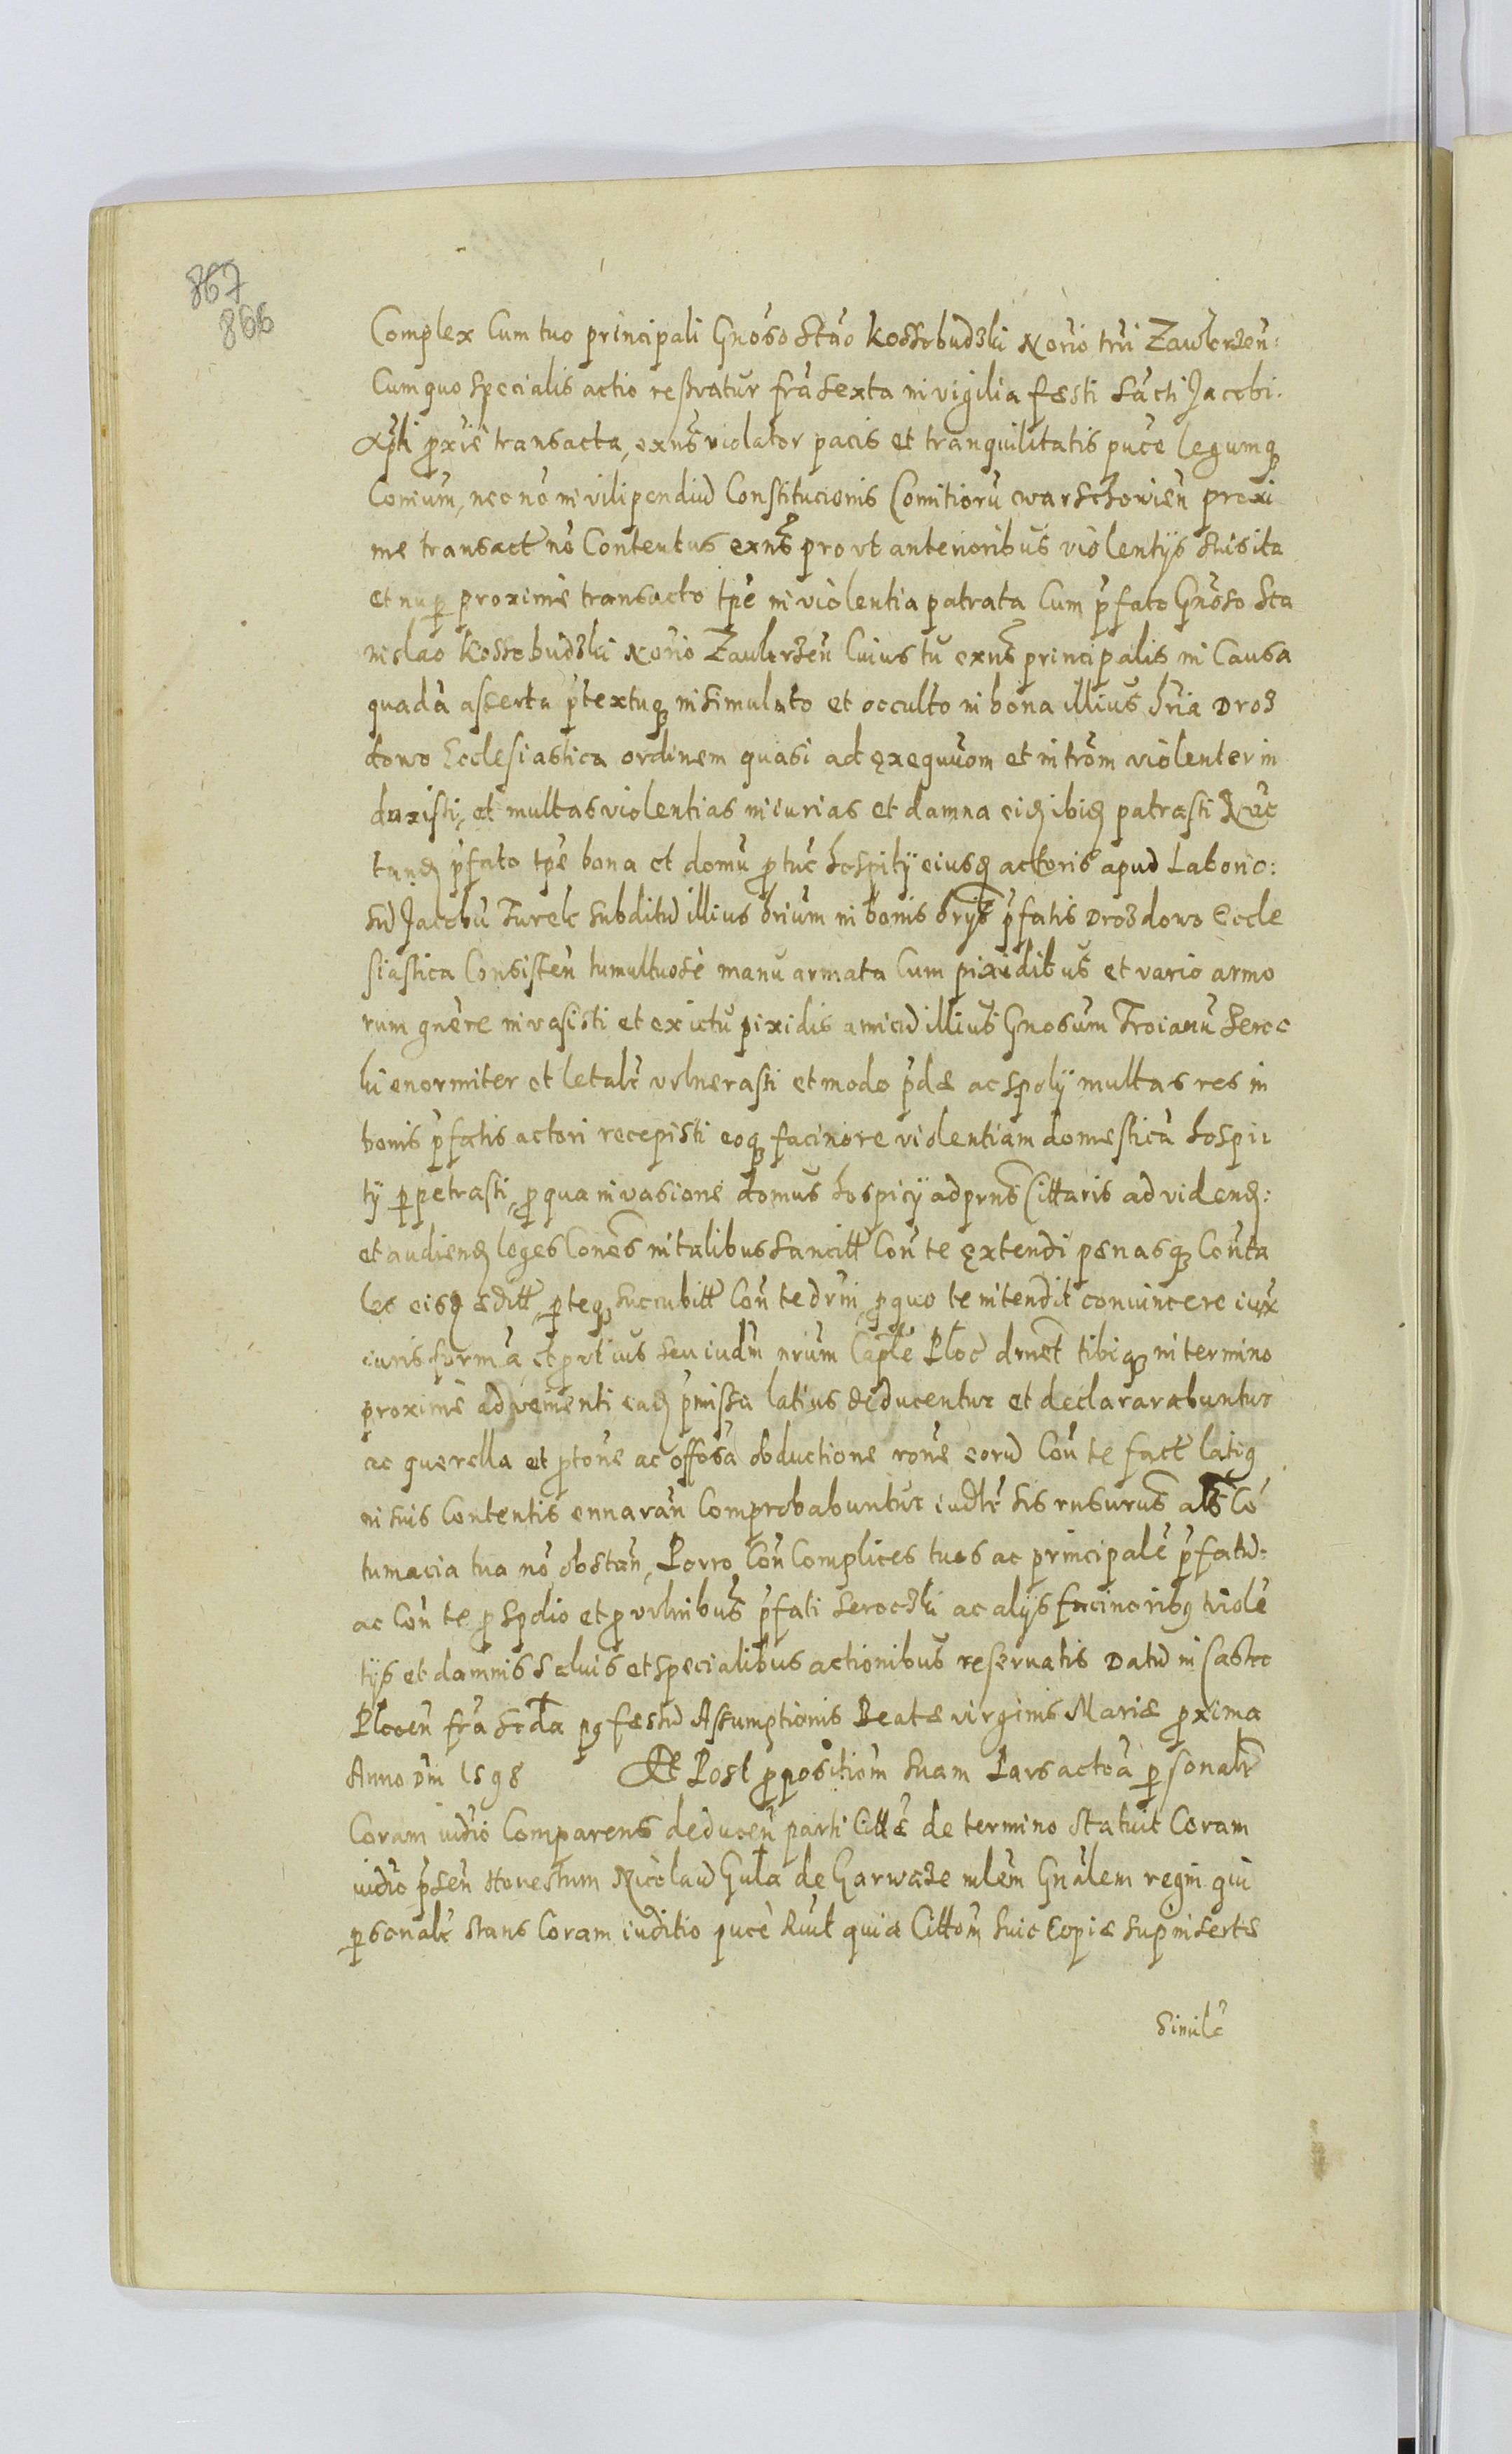 867
866
Complex Cum tuo principali Gnoso Stão Kossobudzki Norio trũi Zawkrzeñ:
Cum quo specialis actio resruatur fra sexta in vigilia fæsti Sãcti Jacobi.
Apli proxie transacta, exns violator pacis et tranquilitatis puce legumq
Coniũm, nec nõ in vilipendiũ Constitucionis Comitiorũ warschouieñ proxi
me transact nõ Contentus exns pro vt anterioribus violentÿs suis ita
et nup proxime transacto tpe in violentia patrata Cum pfato Gnoso Sta
nislao Kossobudzki Norio Zawkrzeñ Cuius tu exns principalis in Causa
quadã asserta ptextuq in simulato et occulto in bona illius hria Droz
dowo Ecclesiastica ordinem quasi ad exequuom et introm violenter in
duxisti, et multas violentias iniurias et damna eid ibid patrasti Nuc
tand pfato tpe bona et domũ protuc hospitÿ eiusd actoris apud Laborio:
sũ Jacobũ Turek subditũ illius hrium in bonis hrÿs pfatis Drozdowo Eccle
siastica Consisteñ tumultuose manu armata Cum pixidibus et vario armo
rum gnere invasisti et ex ictu pixidis amicũ illius Gnosum Troianũ Seroc
ki enormiter et letalr vulnerasti et modo pdæ ac spolÿ multas res in
bonis pfatis actori recepisti eoq facinore violentiam domesticã hospi:
tÿ perpetrasti, pro qua invasione domus hospicÿ ad prns Cittaris ad videnđ:
et audienđ leges Cones in talibus Sancitt Coñ te extendi pænasq Coñ ta
les eisđ æditt, per teq succubitt Coñ te drni pro quo te intendit convincere iux
iuris formã et prout ius seu iudm nrium Caple Ploc drnet tibiq in termino
proxime advenienti eađ pmissa latius deducentur et declararabuntur
ac querella et protone ac offosã obductione rone eorũ Coñ te fact latiq
in suis Contentis ennarañ Comprobabuntur iudlr sis rnsurus als Co
tumacia tua nõ obstañ, Porro Coñ Complices tuos ac principalẽ pfatũ:
ac Coñ te pro spolio et pro vulnibus pfati Serocki ac alÿs facinoribq violẽ
tÿs et damnis Saluis et specialibus actionibus reseruatis Datũ in Castro
Ploceñ fra Scda pq fæstũ Assumptionis Beatæ virginis Mariæ proxima
Anno Dm 1598 Et Post propositiom suam Pars actoa personalr
Coram iudio Comparens deduceñ parti Cittæ de termino Statuit Coram
iudio pseñ Honestum Nicolaũ Gula de Garwacze mlem Gnalem regni qui
personalr Stans Coram iuditio puce Rwt quia Cittom huic Copiæ sup insertæ
Simile